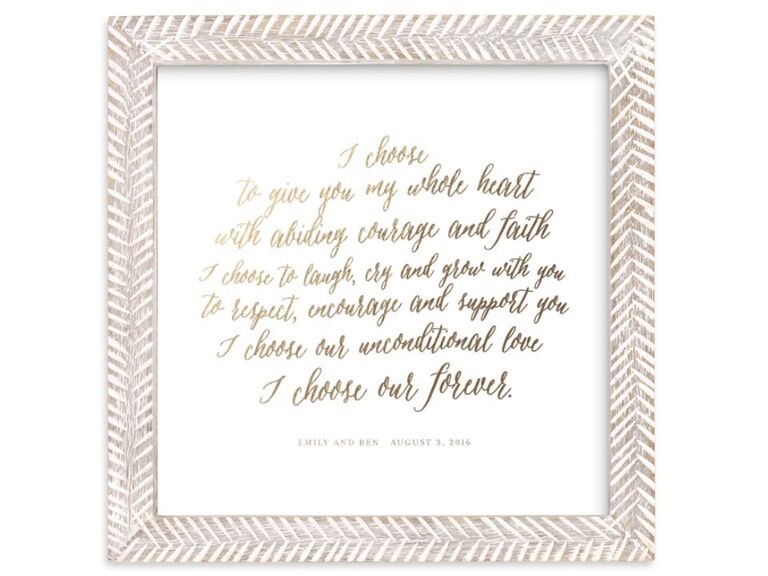 I choose
to give you my whole heart
with abiding courage and faith
I choose to laugh, cry and grow with you
to respect, encourage and support you
I choose our unconditional love
I choose our forever.
EMILY AND BEN AUGUST 3, 2016